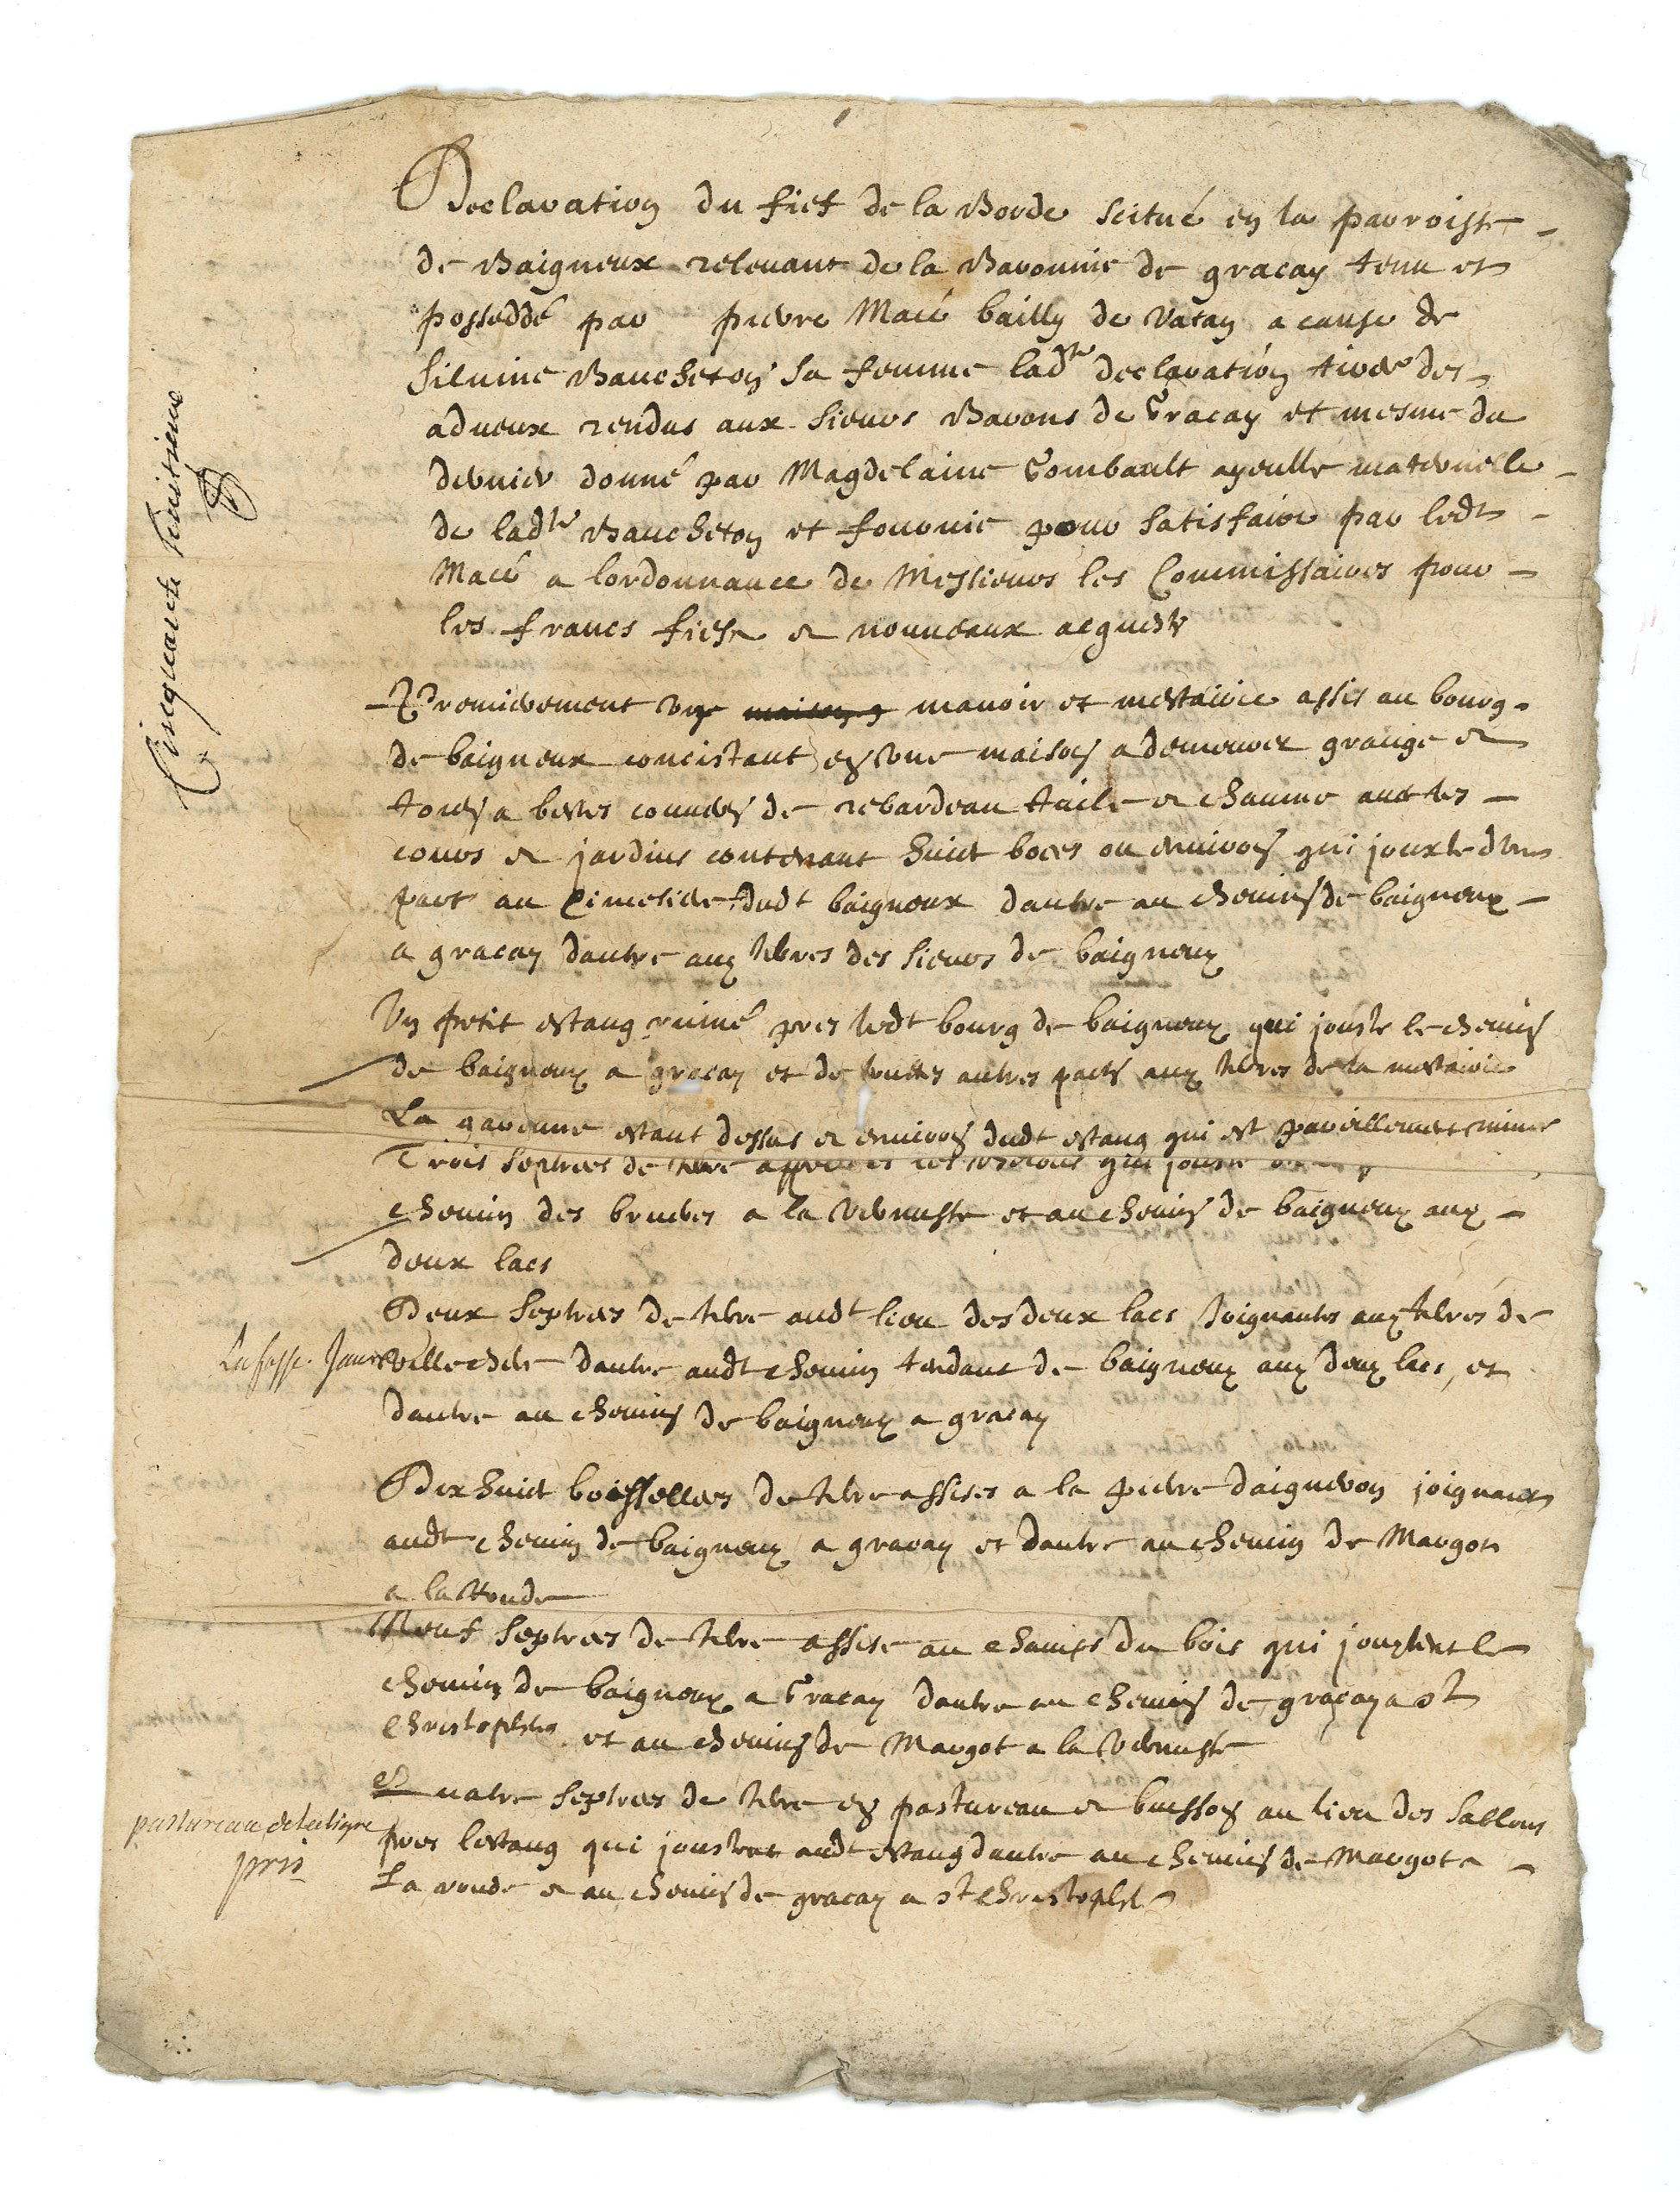 Declaration du fief de la Borde scitué en la parroisse
de Baigneux relevant de la Baronnie de gracay tenu et
posseddé par pierre Macé bailly de Vatan a cause de
silvine Baucheton sa femme lad^te declaration tirée des
adveux rendus aux sieurs Barons de Gracay et mesme du
dernier donné par Magdelaine Gombault ayeulle maternelle
de lad^te Baucheton et fournie pour satisfaire par ledt
Macé a lordonnance de Messieurs les Commissaires pour
les francs fiefs et nouveaux acquests
Cinqueante huistieme
Premierement Un maison manoir et mestairie assis au bourg
de baigneux concistant en une maison a demeurer grange et
touts a bestes couverts de rebardeau tuile et chaume avec les
cours et jardins contenant huict boces ou environ qui jouxte dune
part au Cimetiere dudt baigneux dautre au chemin de baigneux
a gracay dautre aux terres des sieurs de baigneux
Un petit estang ruiné pres ledt bourg de baigneux qui jouste le chemin
de baigneux a gracay et de touttes autres parts aux terres de la mestairie
La garenne estant dessus et environ dudt estang qui est pareillement ruinee
Trois septrees de terre appellees les qui jouste
chemin des bruieres a la Vernusse et au chemin de baigneux aux
deux lacs
Deux septrees de terre audt lieu des deux lacs Joignantes aux terres de
La fosse. Jean
villechere dautre audt chemin tendant de baigneux aux deux lacs, et
dautre au chemin de baigneux a gracay
Dix huict boissellees de terre assises a la pierre daigneron joignant
audt chemin de baigneux a gracay et dautre au chemin de Margot
a la Ronde
Neuf septrees de terre assise au champs du bois qui jouxtent le
chemin de baigneux a Gracay dautre au chemin de graçay a st
Christophle et au chemin de Margot a la Vernusse
Quatre septrees de terre en pastureau et buisson au lieu des sablons
pastureau de la ligne
pris
pres lestang qui joustent audt estang dautre au chemin de Margot a
La ronde et au chemin de gracay a st Christophle